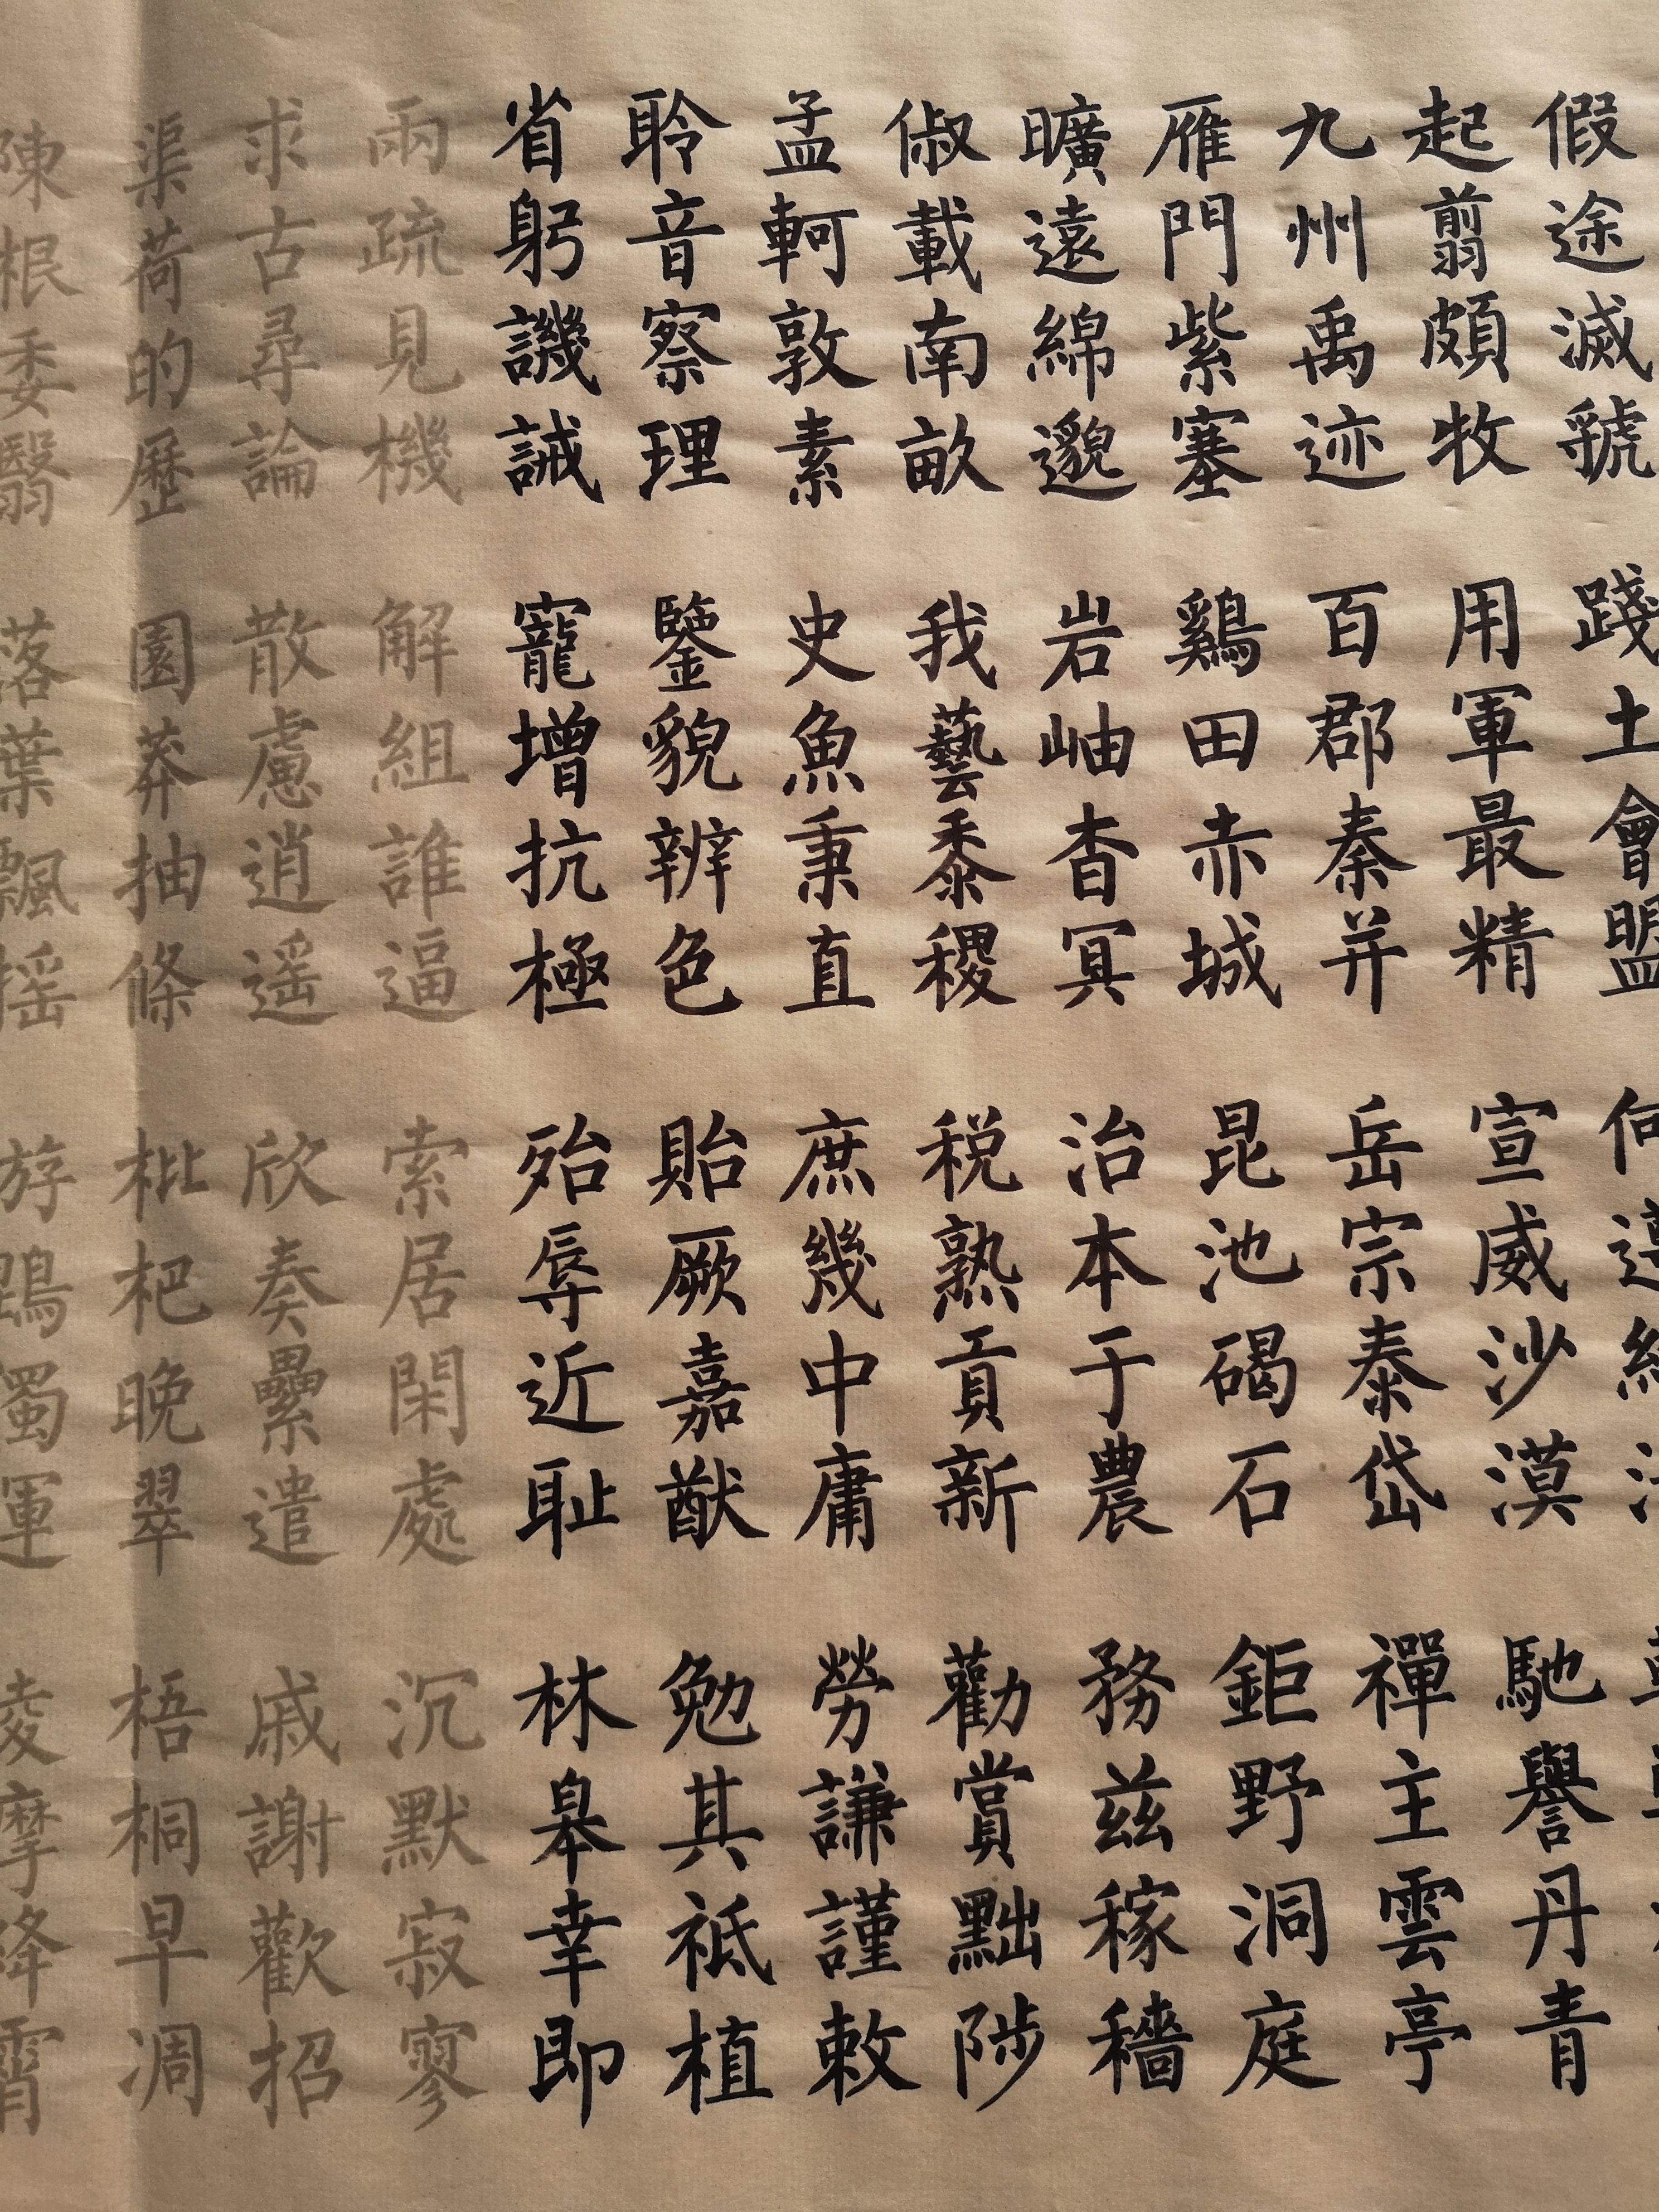 假途滅虢 踐土會盟 何遵約
起翦頗牧 用軍最精 宣威沙漠 馳譽丹青
九州禹迹 百郡秦并 岳宗泰岱 禪主雲亭
雁門紫塞 鷄田赤城 昆池碣石 鉅野洞庭
曠遠綿邈 岩岫杳冥 治本于農 務兹稼穡
俶載南畝 我藝黍稷 税熟貢新 勸賞黜陟
孟軻敦素 史魚秉直 庶幾中庸 勞謙謹敕
聆音察理 鑒貌辨色 貽厥嘉猷 勉其祗植
省躬譏誡 寵增抗極 殆辱近耻 林皋幸即
兩疏見機 解組誰逼 索居閑處 沉默寂寥
求古尋論 散慮逍遥 欣奏纍遣 戚謝歡招
渠荷的歷 園莽抽條 枇杷晚翠 梧桐早凋
陳根委翳 落葉飄摇 游鵾獨運 凌摩絳霄